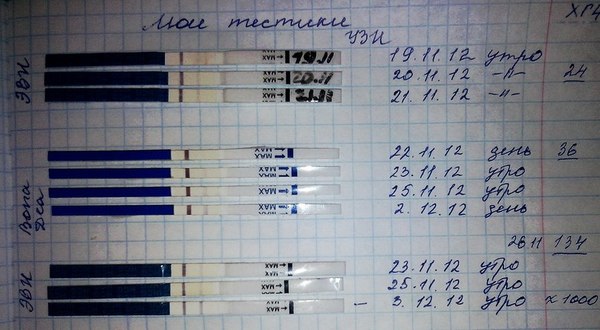 Мои тестики
УЗИ
ХГЧ
ЭВИ
MAX 19.11 19.11.12 утро
MAX 20.11 20.11.12 -"- 24
MAX 21.11 21.11.12 -"-
MAX 22.11.12 день 36
MAX 23.11.12 утро
MAX 25.11.12 утро
MAX 2.12.12 день
26 11 134
ЭВИ
MAX 23.11.12 утро
MAX 25.11.12 утро
MAX – 3.12.12 утро x 1000